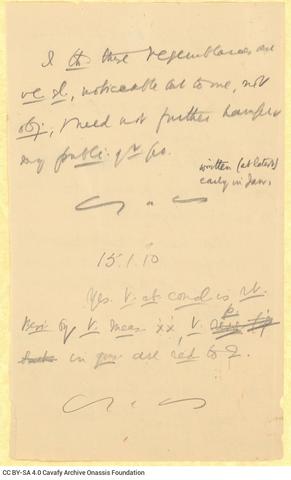 I th these resemblances are
ve sl, noticeable but to me, not
obj, I need not further hamper
my publi. of po.
written (at latest)
early in Jan.
15.1.10
Yes. V. at cond is rt.
V. meas xx, V.
in are red to 2.
CC BY-SA 4.0 Cavafy Archive Onassis Foundation